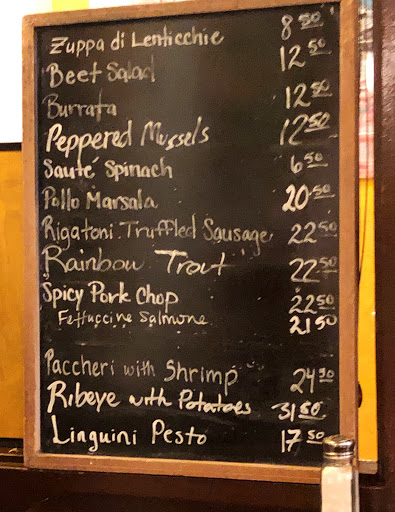 Zuppa di Lenticchie 8.50
Beet Salad 12.50
Burrata 12.50
Peppered Mussels 12.50
Sauté Spinach 6.50
Pollo Marsala 20.50
Rigatoni Truffled Sausage 22.50
Rainbow Trout 22.50
Spicy Pork Chop 22.50
Fettuccine Salmone 21.50
Paccheri with Shrimp 24.90
Ribeye with Potatoes 31.50
Linguini Pesto 17.50